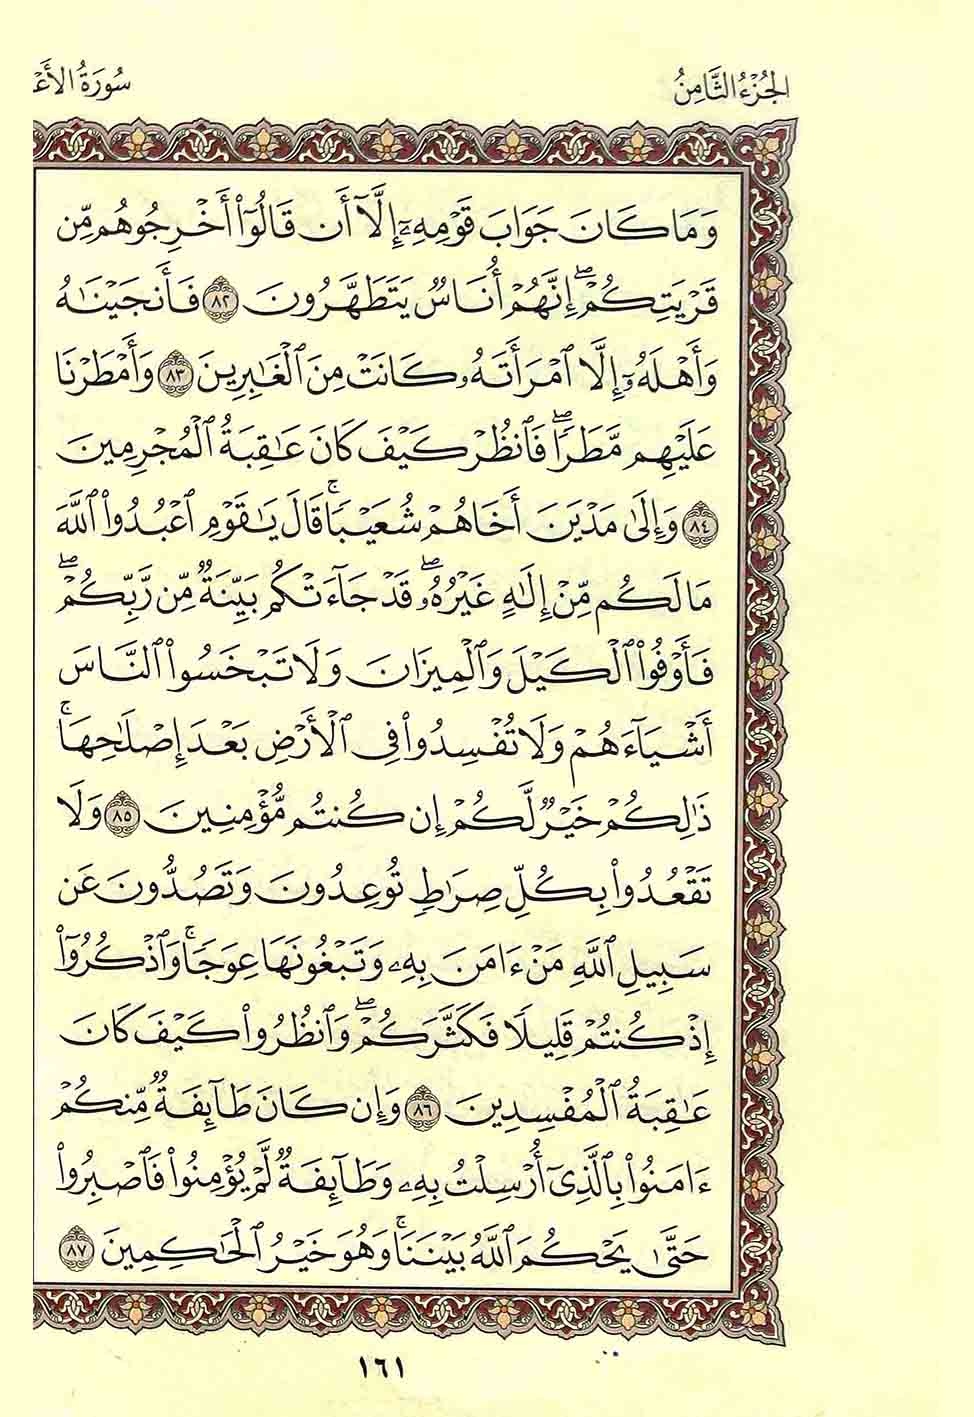 الجُزْءُ الثَّامِنُ
سُورَةُ الأَعْ
وَمَا كَانَ جَوَابَ قَوْمِهِۦٓ إِلَّآ أَن قَالُوٓا۟ أَخْرِجُوهُم مِّن
قَرْيَتِكُمْ ۖ إِنَّهُمْ أُنَاسٌ يَتَطَهَّرُونَ ٨٢ فَأَنجَيْنَـٰهُ
وَأَهْلَهُۥٓ إِلَّا ٱمْرَأَتَهُۥ كَانَتْ مِنَ ٱلْغَـٰبِرِينَ ٨٣ وَأَمْطَرْنَا
عَلَيْهِم مَّطَرًا ۖ فَٱنظُرْ كَيْفَ كَانَ عَـٰقِبَةُ ٱلْمُجْرِمِينَ
٨٤ وَإِلَىٰ مَدْيَنَ أَخَاهُمْ شُعَيْبًا ۚ قَالَ يَـٰقَوْمِ ٱعْبُدُوا۟ ٱللَّهَ
مَا لَكُم مِّنْ إِلَـٰهٍ غَيْرُهُۥ ۖ قَدْ جَآءَتْكُم بَيِّنَةٌ مِّن رَّبِّكُمْ ۖ
فَأَوْفُوا۟ ٱلْكَيْلَ وَٱلْمِيزَانَ وَلَا تَبْخَسُوا۟ ٱلنَّاسَ
أَشْيَآءَهُمْ وَلَا تُفْسِدُوا۟ فِى ٱلْأَرْضِ بَعْدَ إِصْلَـٰحِهَا ۚ
ذَٰلِكُمْ خَيْرٌ لَّكُمْ إِن كُنتُم مُّؤْمِنِينَ ٨٥ وَلَا
تَقْعُدُوا۟ بِكُلِّ صِرَٰطٍ تُوعِدُونَ وَتَصُدُّونَ عَن
سَبِيلِ ٱللَّهِ مَنْ ءَامَنَ بِهِۦ وَتَبْغُونَهَا عِوَجًا ۚ وَٱذْكُرُوٓا۟
إِذْ كُنتُمْ قَلِيلًا فَكَثَّرَكُمْ ۖ وَٱنظُرُوا۟ كَيْفَ كَانَ
عَـٰقِبَةُ ٱلْمُفْسِدِينَ ٨٦ وَإِن كَانَ طَآئِفَةٌ مِّنكُمْ
ءَامَنُوا۟ بِٱلَّذِىٓ أُرْسِلْتُ بِهِۦ وَطَآئِفَةٌ لَّمْ يُؤْمِنُوا۟ فَٱصْبِرُوا۟
حَتَّىٰ يَحْكُمَ ٱللَّهُ بَيْنَنَا ۚ وَهُوَ خَيْرُ ٱلْحَـٰكِمِينَ ٨٧
١٦١